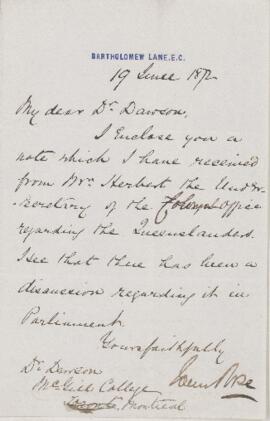 BARTHOLOMEW LANE. E.C.
19 June 1872
My dear Dr. Dawson,
I Enclose you a
note which I have received
from Mr. Herbert the Under-
Secretary of the Colonial Office
regarding the Queenslanders.
I see that there has been a
discussion regarding it in
Parliament.
Yours faithfully
John Rose
Dr Dawson
McGill College
Toronto, Montreal